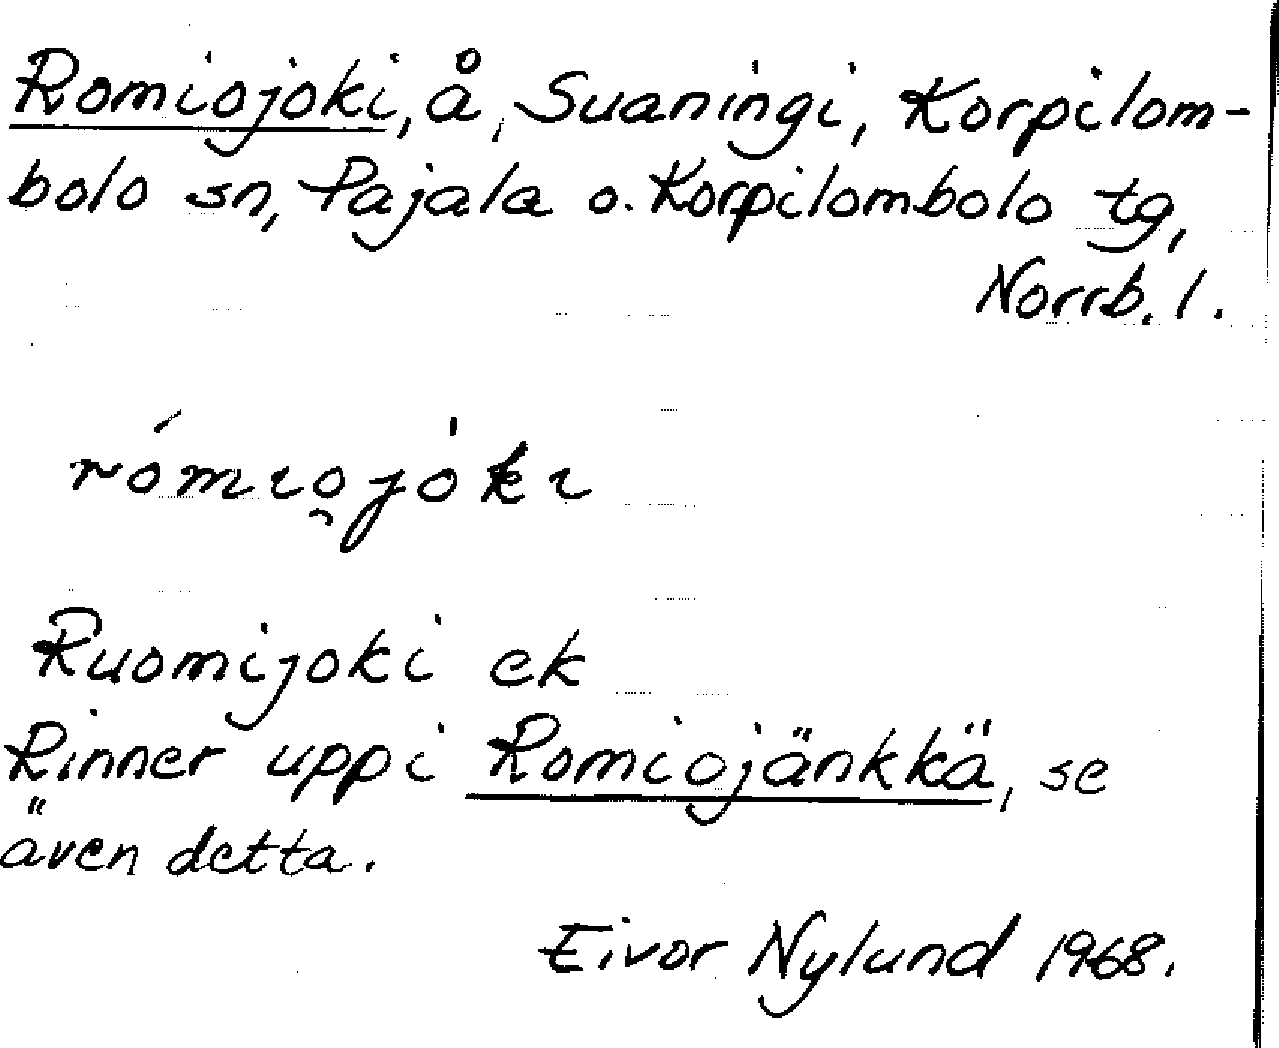 Romiojoki, å, Suaningi, Korpilom-
bolo sn, Pajala o. Korpilombolo tg,
Norrb. l.
rómio̯jȯkı
Ruomijoki ek
Rinner uppi Romiojänkkä, se
även detta.
Eivor Nylund 1968.